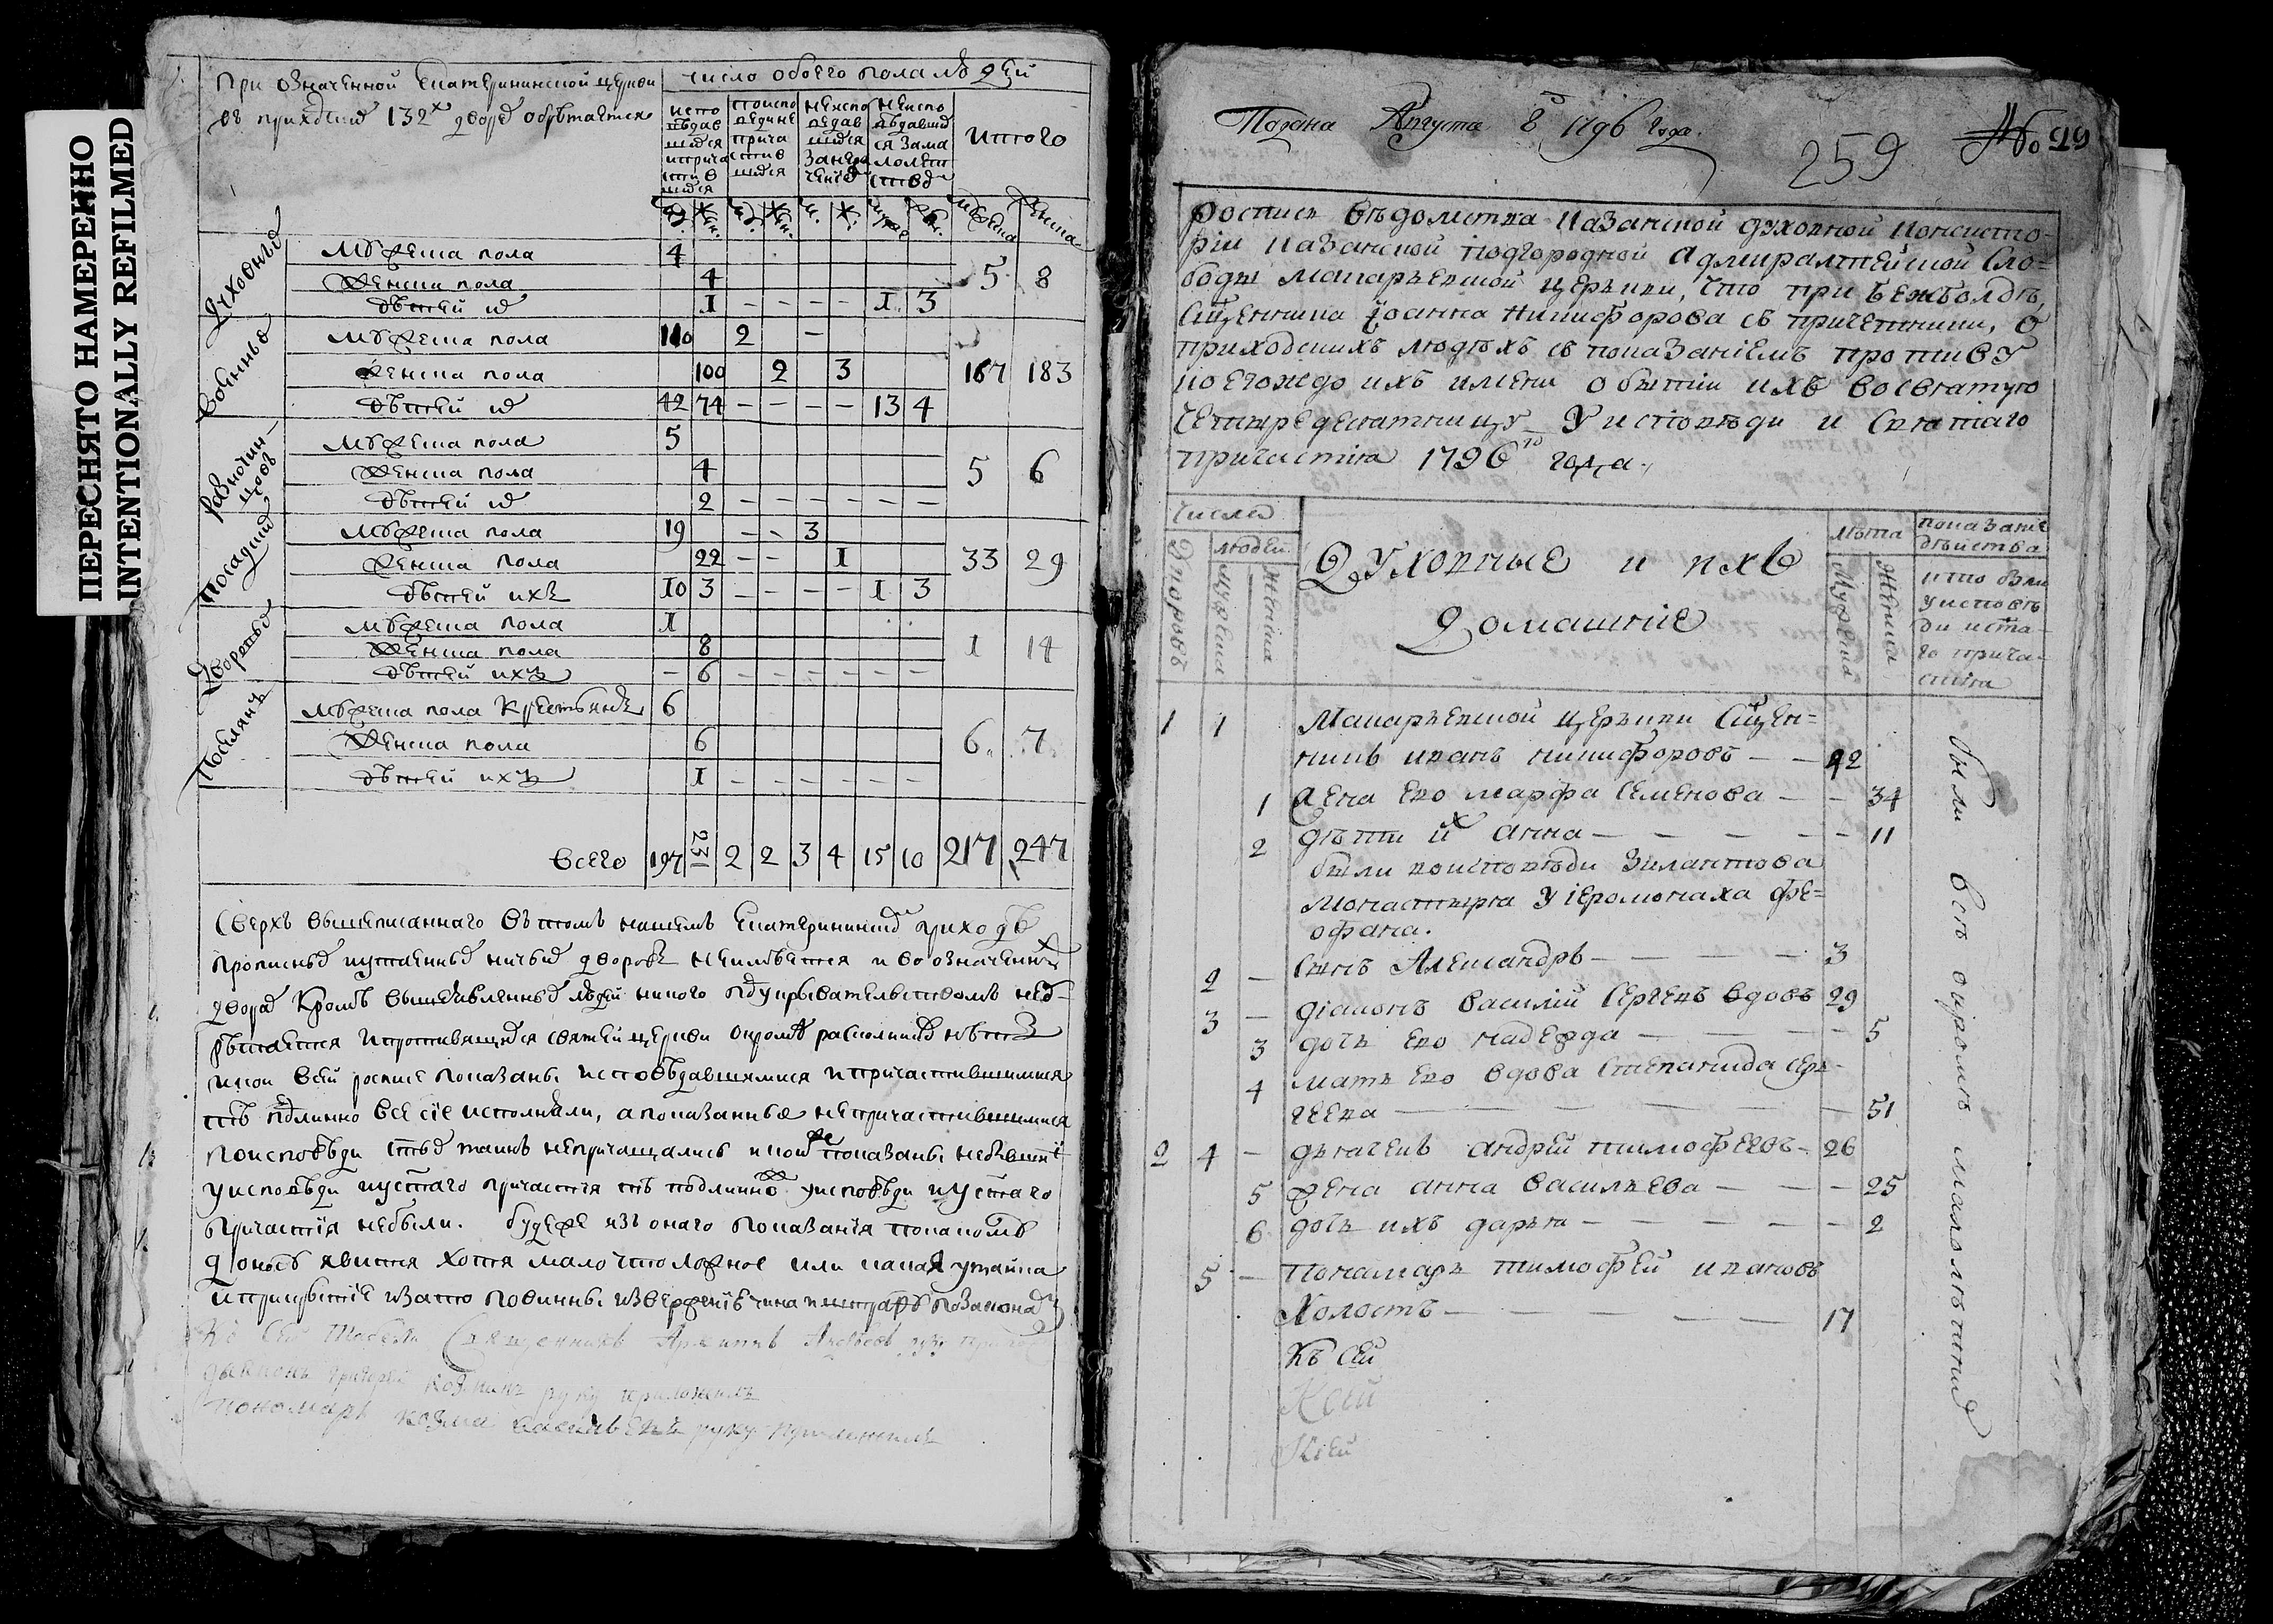 ПЕРЕСНЯТО НАМЕРЕННО
INTENTIONALLY REFILMED
При означенной Екатерининской церкви
въ приходских 132х дворех обретается
число обоего пола людей
исповедавшихся и причастившихся
по исповеди не причастившихся
не исповедавшихся за нерачением
не исповедавшихся за малолетством
итого
Духовных
Мужеска пола 4
Женска пола 4
детей их 1 - - - - 1 3
5 8
Военных
Мужеска пола 110 2 -
Женска пола 100 2 3
детей их 42 74 - - - - 13 4
167 183
Разночинцов
Мужеска пола 5
Женска пола 4
детей их 2 - - - - - -
5 6
Посадских
Мужеска пола 19 - - 3
Женска пола 22 - - 1
детей ихъ 10 3 - - - - 1 3
33 29
Дворовых
Мужеска пола 1
Женска пола 8
детей ихъ - 6 - - - - - -
1 14
Поселянъ
Мужеска пола крестьянъ 6
Женска пола 6
детей ихъ 1 - - - - - -
6 7
Всего 197 231 2 2 3 4 15 10 217 247
Сверхъ вышеписаннаго въ томъ нашемъ Екатерининском приходѣ
прописных и утаенных ничьих дворовъ не имѣется и во означенных
дворах кромѣ вышеявленных людей никого под укрывательством не об-
рѣтается и противящихся святей церкви окромѣ раскольниковъ нѣтъ
и кои в сей росписе показаны исповѣдавшимися и причастившимися
тѣ подлинно все сие исполняли, а показанные не причастившимися
по исповѣди святых таинъ не причащались и кои же показаны не бывшие
у исповѣди и у святаго причастия тѣ подлинно у исповѣди и у святаго
причастия небыли. буде же изъ онаго показания по какомъ
доносѣ явится хотя мало что ложное или какая утайка
и прикрытие и за то повинны извержения чина и штрафу по законам
Къ сей табели священникъ
дьяконъ Григорей руку приложилъ
пономарь Козма Васильевъ руку приложилъ
Подана Августа 8 1796 года.
259
№ 99
Роспись вѣдомства Казанской духовной консисто-
рiи Казанской подгородной Адмиралтейской Сло-
боды Макарьевской церькви, что при Бежболдѣ,
Сщенника Iоанна Никифорова съ причетники, о
приходскихъ людѣхъ съ показанiемъ противу
коегождо ихъ имени о бытiи ихъ во святую
четыредесятницу у исповѣди и святаго
причастiя 1796го года.
число
дворовъ
людей
мужеска
женска
Духовные и ихъ
домашнiе
лѣта
Мужеска
Женска
показание
дѣйства
кто былъ
у исповѣ
ди и ста-
го прича-
стiя
1 1 Макарьевской церькви Сщен-
никъ иванъ никифоровъ - - 42
1 Жена ево марфа семенова - - 34
2 дѣти их анна - - - - - 11
были на исповѣди Зилантова
монастыря у iеромонаха фе-
офана.
2 - сынъ Александръ - - - - 3
3 - дiаконъ василiй Сергѣевъ вдовъ 29
3 дочь ево надежда - - - - 5
4 мать ево вдова степанида сер-
геева - - - - - - 51
2 4 - дьячекъ андрей тимофеевъ - 26
5 жена анна васильева - - - 25
6 дочь ихъ дарья - - - - - 2
5 - Пономарь тимофей ивановъ
Холостъ - - - - - 17
Къ сей
К сей
К сей
были всѣ окромѣ малолѣтних